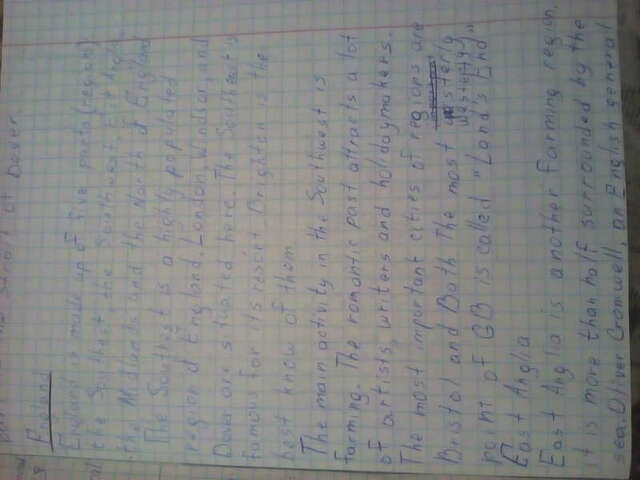 the Strait of Dover.
England
England is made up of five parts (regions)
the Southest, the Southwest, East Anglia
the Midlands and the North of England
The Southest is a highly populated
region of England. London, Windsor, and
Dover are situated here. The Southeast is
famous for its resort Brighton is the
best know of them
The main activity in the Southwest is
farming. The romantic past attracts a lot
of artists, writers and holidaymakers.
The most important cities of regions are
Bristol and Bath The most westerly
point of GB is called "Land's End"
East Anglia
East Anglia is another farming region,
it is more than half surrounded by the
sea. Oliver Cromwell, an English general